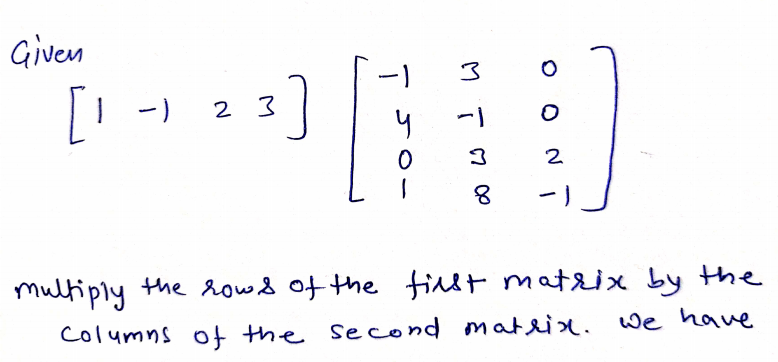 Given
[1 -1 2 3] [-1 3 0
4 -1 0
0 3 2
1 8 -1]
multiply the rows of the first matrix by the
columns of the second matrix. we have